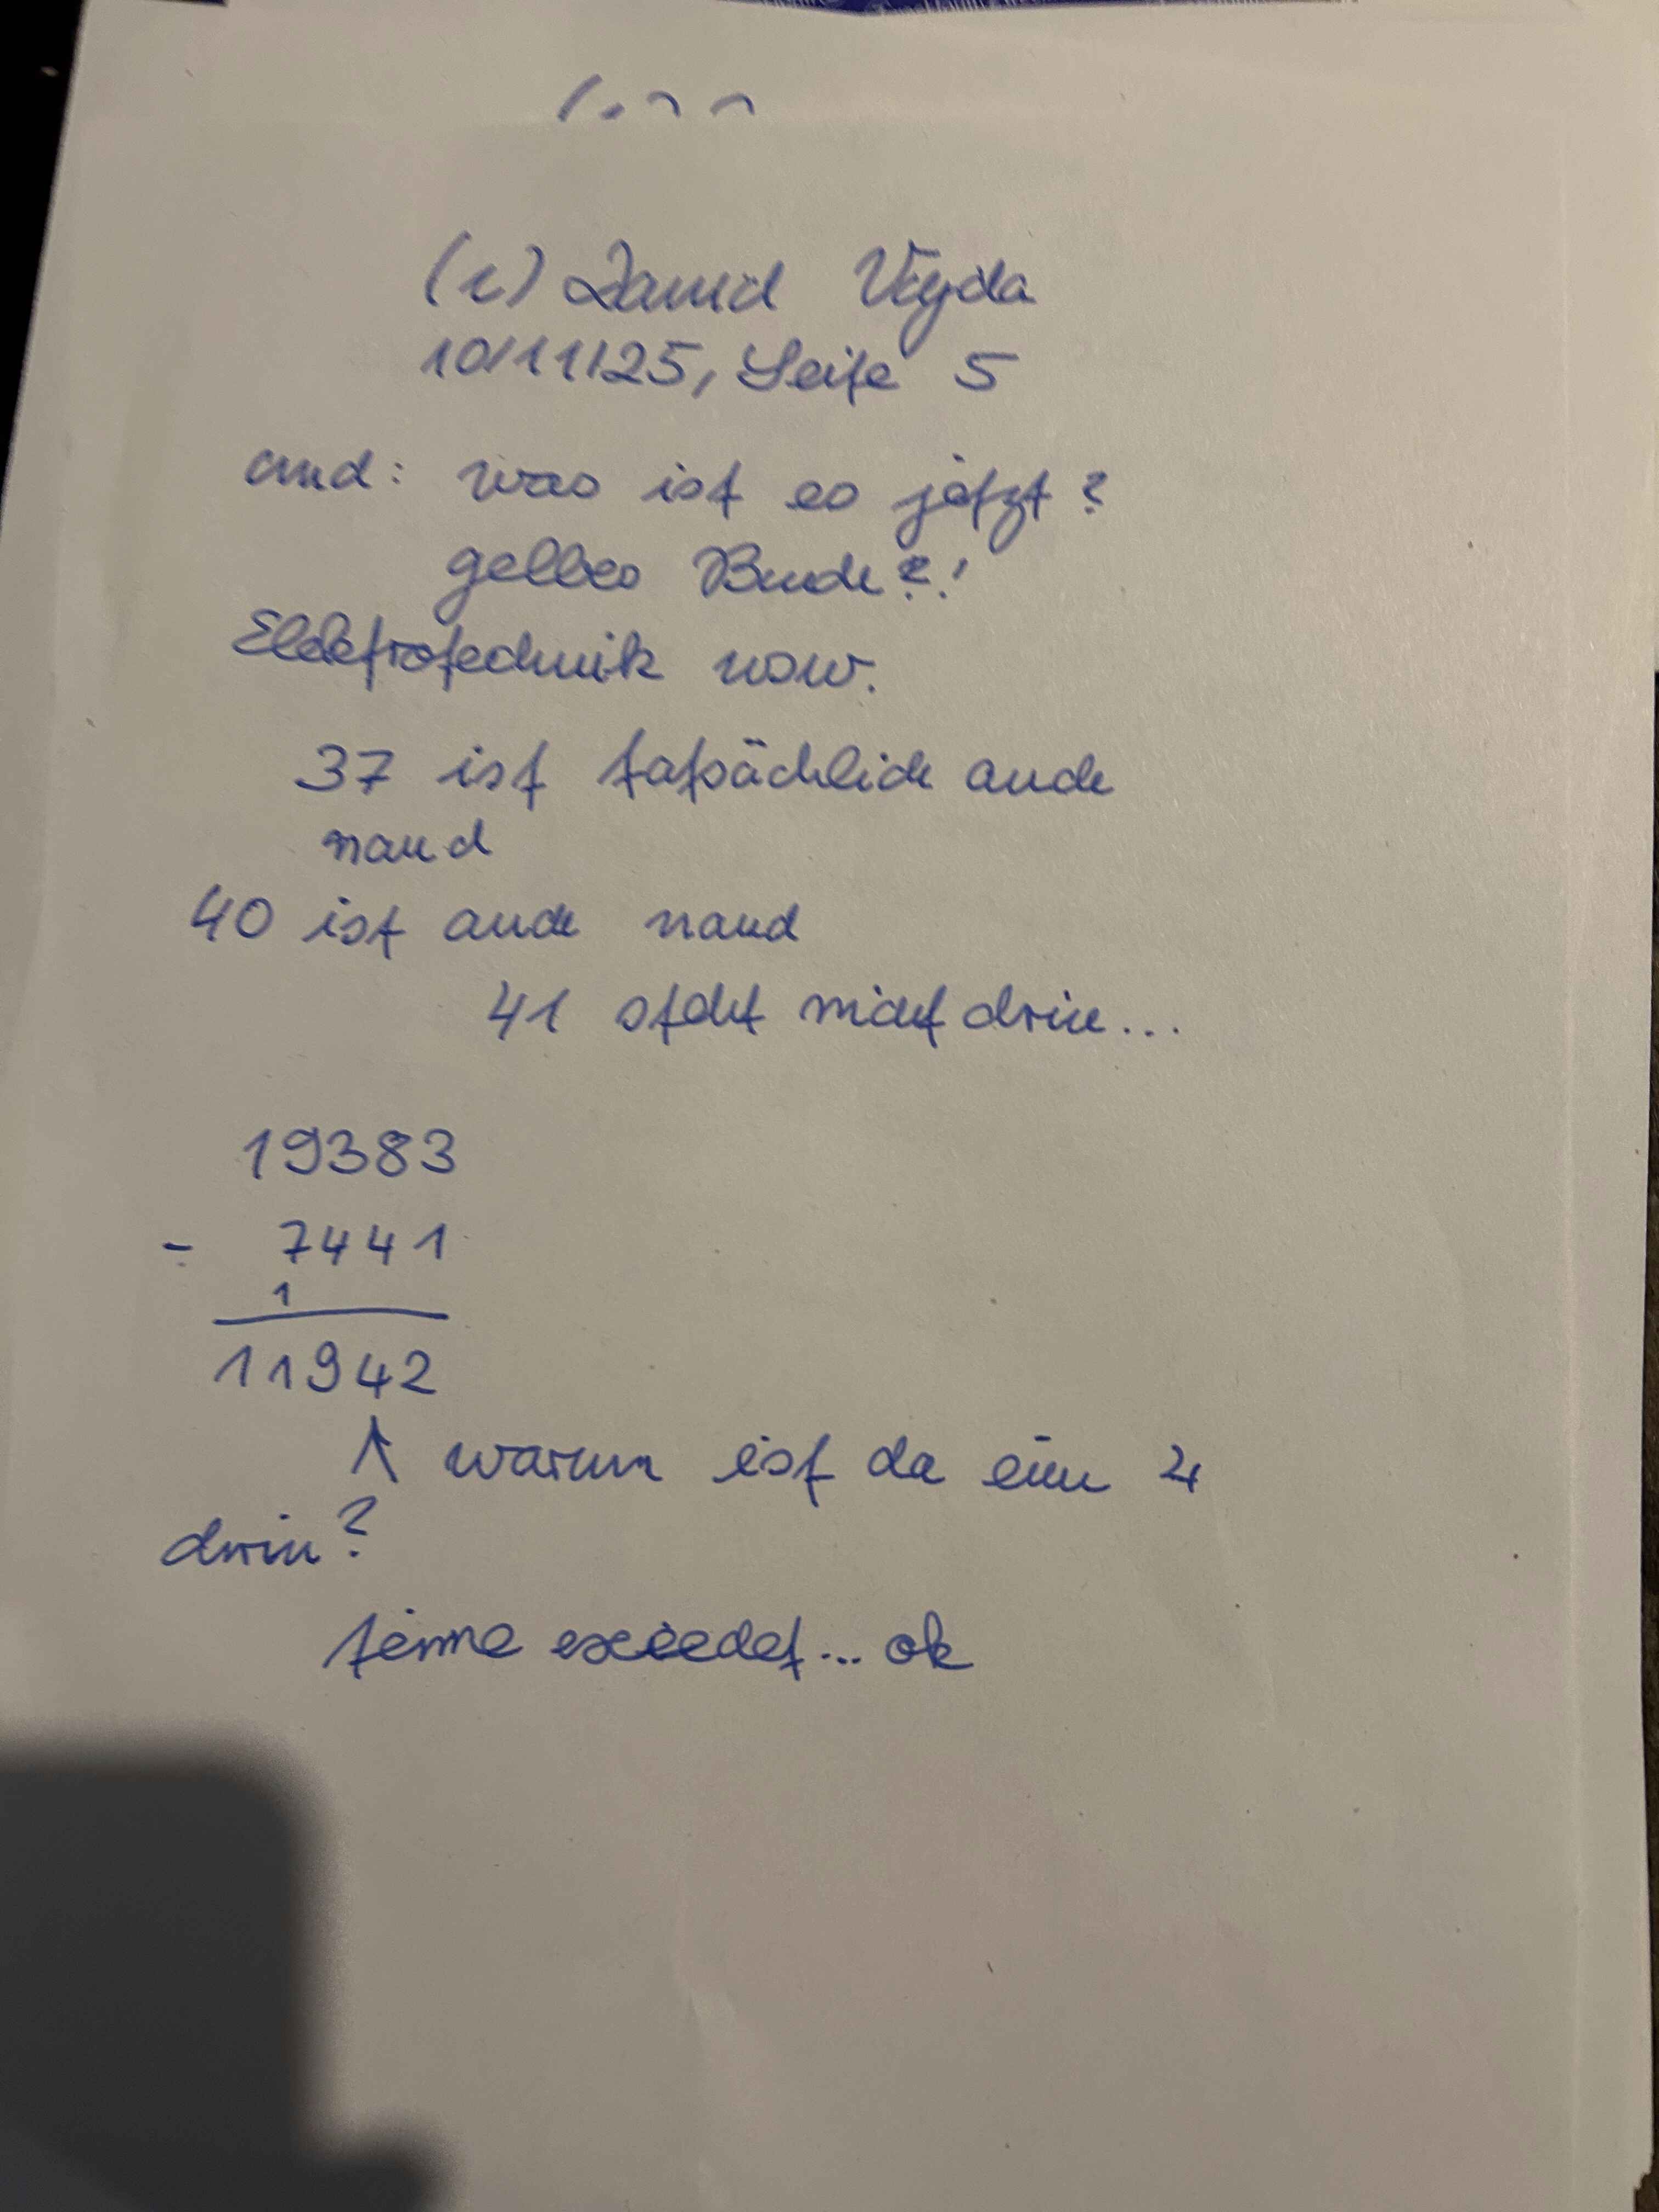 (c) David Vajda
10/11/25, Seite 5
and: was ist es jetzt?
gelbes Buch?!
Elektrotechnik usw.
37 ist tatsächlich auch
nand
40 ist auch nand
41 steht nicht drin...
19383
- 7441
1
11942
^ warum ist da eine 4
drin?
time exceedet... ok